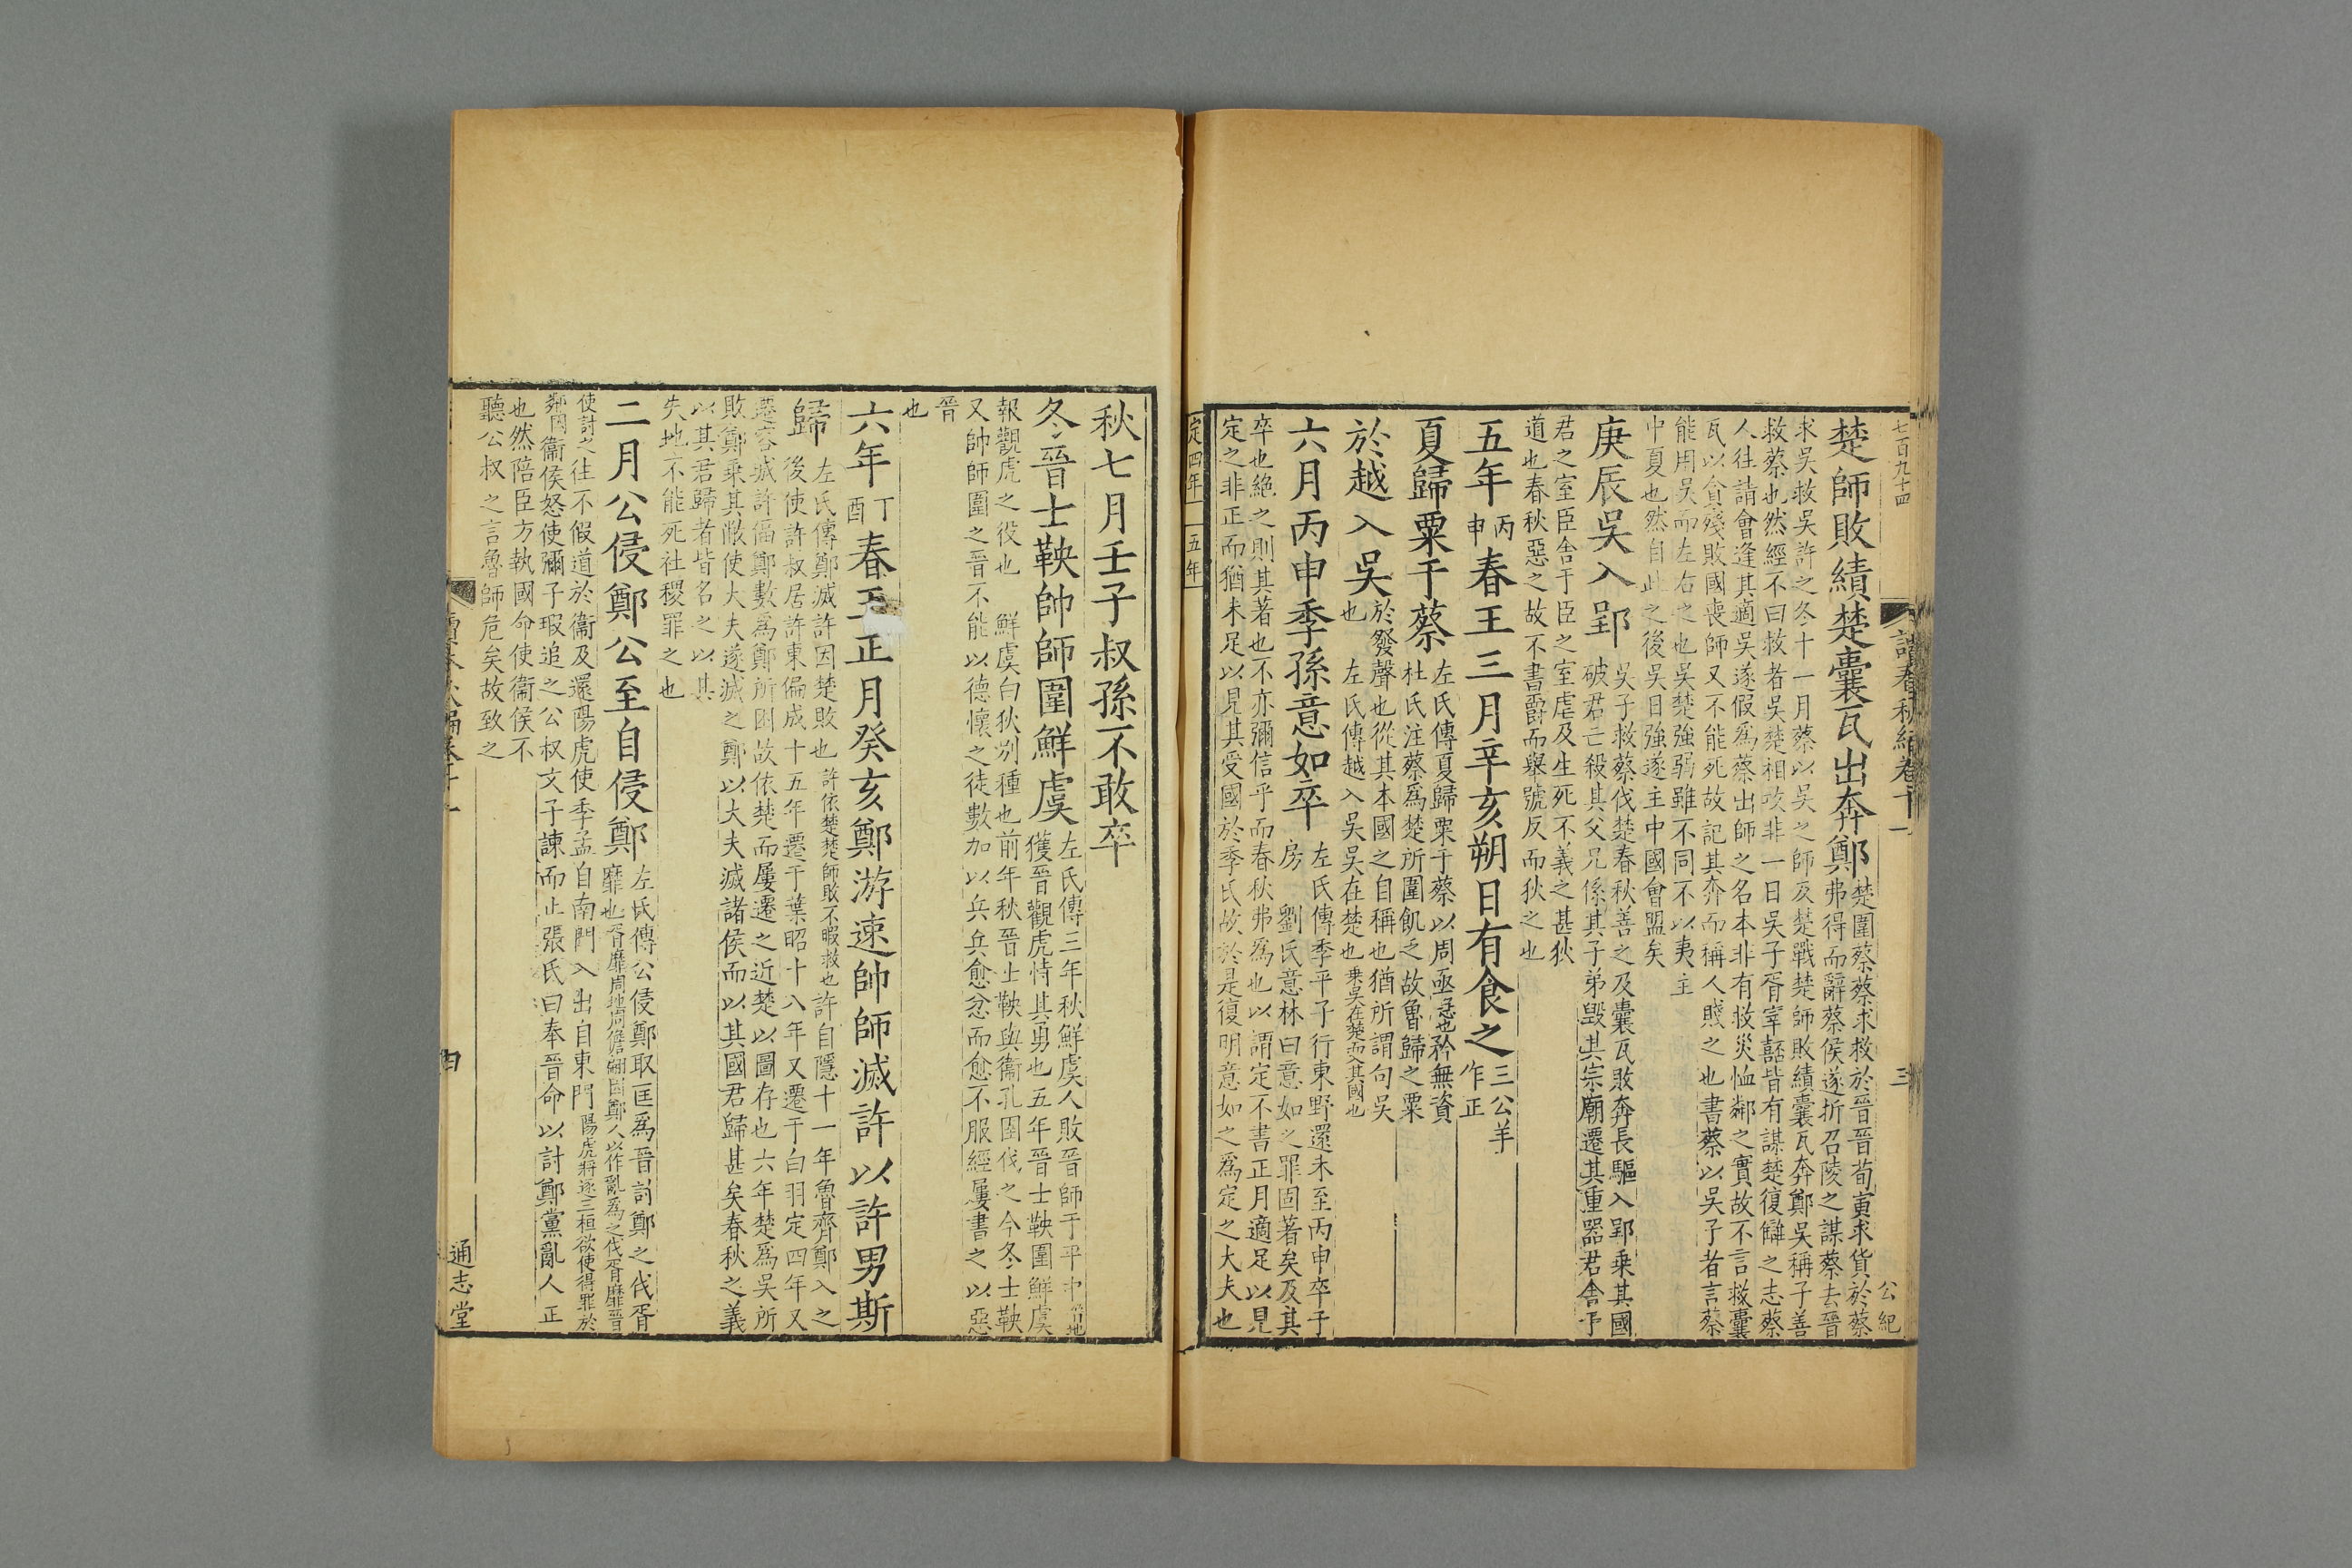 七百九十四
讀春秋編卷十一
三
公紀
楚師敗績楚囊瓦出奔鄭
楚圍蔡蔡求救於晉晉荀寅求貨於蔡
弗得而辭蔡侯遂折召陵之謀蔡去晉
求吳救吳許之冬十一月蔡以吳之師及楚戰楚師敗績囊瓦奔鄭吳稱子善
救蔡也然經不曰救者吳楚相攻非一日吳子胥宰嚭皆有謀楚復讎之志蔡
人往請會逢其適吳遂假爲蔡出師之名本非有救災恤鄰之實故不言救囊
瓦以貪殘敗國喪師又不能死故記其奔而稱人賤之也書蔡以吳子者言蔡
能用吳而左右之也吳楚強弱雖不同不以夷主
中夏也然自此之後吳日強遂主中國會盟矣
庚辰吳入郢
吳子救蔡伐楚春秋善之及囊瓦敗奔長驅入郢乗其國
破君亡殺其父兄係其子弟毁其宗廟遷其重器君舎于
君之室臣舎于臣之室虐及生死不義之甚狄
道也春秋惡之故不書爵而舉號反而狄之也
五年
丙
申
春王三月辛亥朔日有食之
三公羊
作正
夏歸粟于蔡
左氏傳夏歸粟于蔡以周亟急也矜無資
杜氏注蔡爲楚所圍飢乏故魯歸之粟
於越入吳
於發聲也從其本國之自稱也猶所謂句吳
也　左氏傳越入吳吳在楚也乗吳在楚而入其國也
六月丙申季孫意如卒
左氏傳季平子行東野還未至丙申卒于
房　劉氏意林曰意如之罪固著矣及其
卒也絶之則其著也不亦彌信乎而春秋弗爲也以謂定不書正月適足以見
定之非正而猶未足以見其受國於季氏故於是復明意如之爲定之大夫也
定四年
五年
秋七月壬子叔孫不敢卒
冬晉士鞅帥師圍鮮虞
左氏傳三年秋鮮虞人敗晉師于平中晉地
獲晉觀虎恃其勇也五年晉士鞅圍鮮虞
報觀虎之役也　鮮虞白狄別種也前年秋晉士鞅與衞孔圉伐之今冬士鞅
又帥師圍之晉不能以德懷之徒數加以兵兵愈忿而愈不服經屢書之以惡
晉
也
六年
丁
酉
春王正月癸亥鄭游速帥師滅許以許男斯
歸
左氏傳鄭滅許因楚敗也許依楚楚師敗不暇救也許自隱十一年魯齊鄭入之
後使許叔居許東偏成十五年遷于葉昭十八年又遷于白羽定四年又
遷容城許偪鄭數爲鄭所困故依楚而屢遷之近楚以圖存也六年楚爲吳所
敗鄭乗其敝使大夫遂滅之鄭以大夫滅諸侯而以其國君歸甚矣春秋之義
以其君歸者皆名之以其
失地不能死社稷罪之也
二月公侵鄭公至自侵鄭
左氏傳公侵鄭取匡爲晉討鄭之伐胥
靡也胥靡周地周儋翩因鄭人以作亂爲之伐胥靡晉
使討之往不假道於衞及還陽虎使季孟自南門入出自東門陽虎將逐三桓欲使得罪於
鄰國衞侯怒使彌子瑕追之公叔文子諫而止張氏曰奉晉命以討鄭黨亂人正
也然陪臣方執國命使衞侯不
聽公叔之言魯師危矣故致之
讀春秋編卷十一
四
通志堂